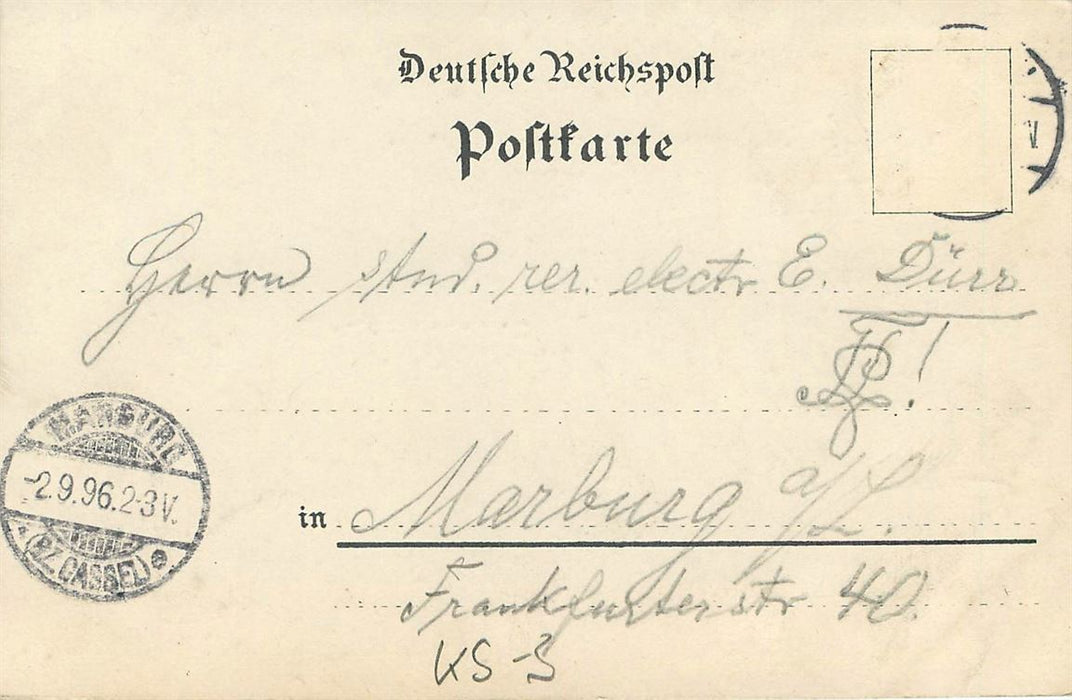 Deutsche Reichspost
Postkarte
Herrn stud. rer. electr E. Dürr
!
MARBURG
-2.9.96.2-3V.
(BZ. CASSEL)
in Marburg a/L.
Frankfurterstr 40.
KS-S